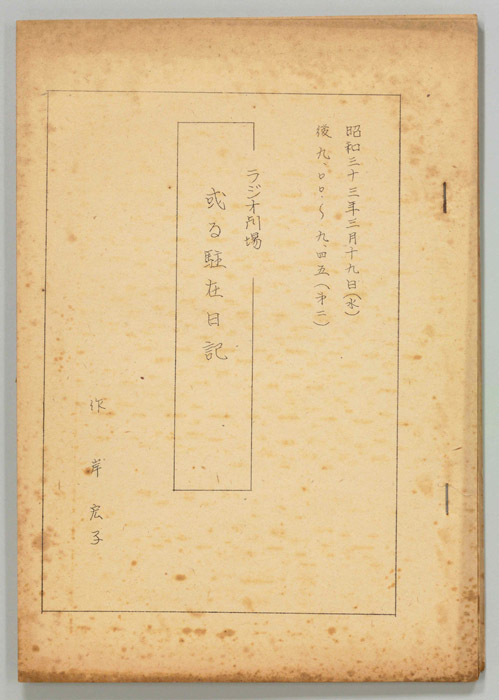 昭和三十三年三月十九日(水)
後九、〇〇.〜九、四五(才二)
ラジオ劇場
或る駐在日記
作 岸 宏子